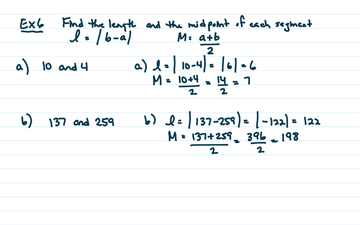 Ex6 Find the length and the midpoint of each segment
l = |b-a| M = a+b/2
a) 10 and 4 a) l = |10-4| = |6| = 6
M = 10+4/2 = 14/2 = 7
b) 137 and 259 b) l = |137-259| = |-122| = 122
M = 137+259/2 = 396/2 = 198